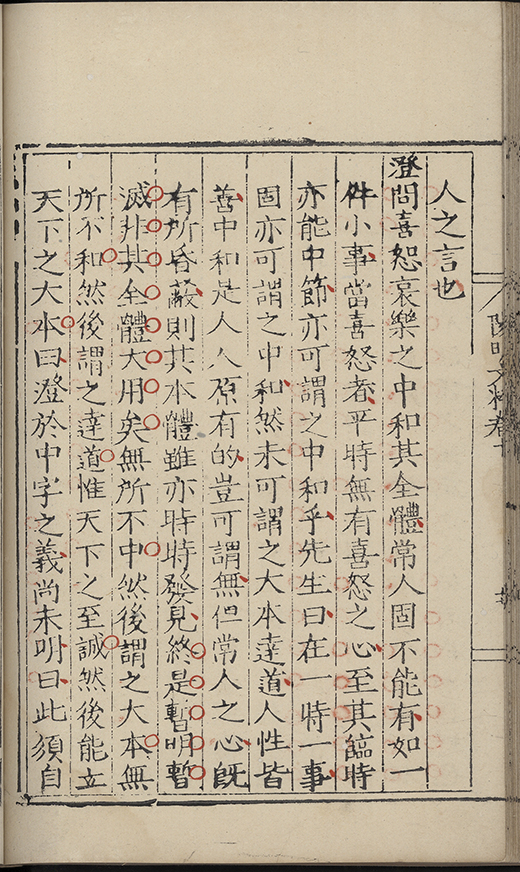 人之言也
澄問喜怒哀樂之中和其全體常人固不能有如一
件小事當喜怒者平時無有喜怒之心至其臨時
亦能中節亦可謂之中和乎先生曰在一時一事
固亦可謂之中和然未可謂之大本達道人性皆
善中和是人人原有的豈可謂無但常人之心既
有所昏蔽則其本體雖亦時時發見終是暫明暫
滅非其全體大用矣無所不中然後謂之大本無
所不和然後謂之達道惟天下之至誠然後能立
天下之大本曰澄於中字之義尚未明曰此須自